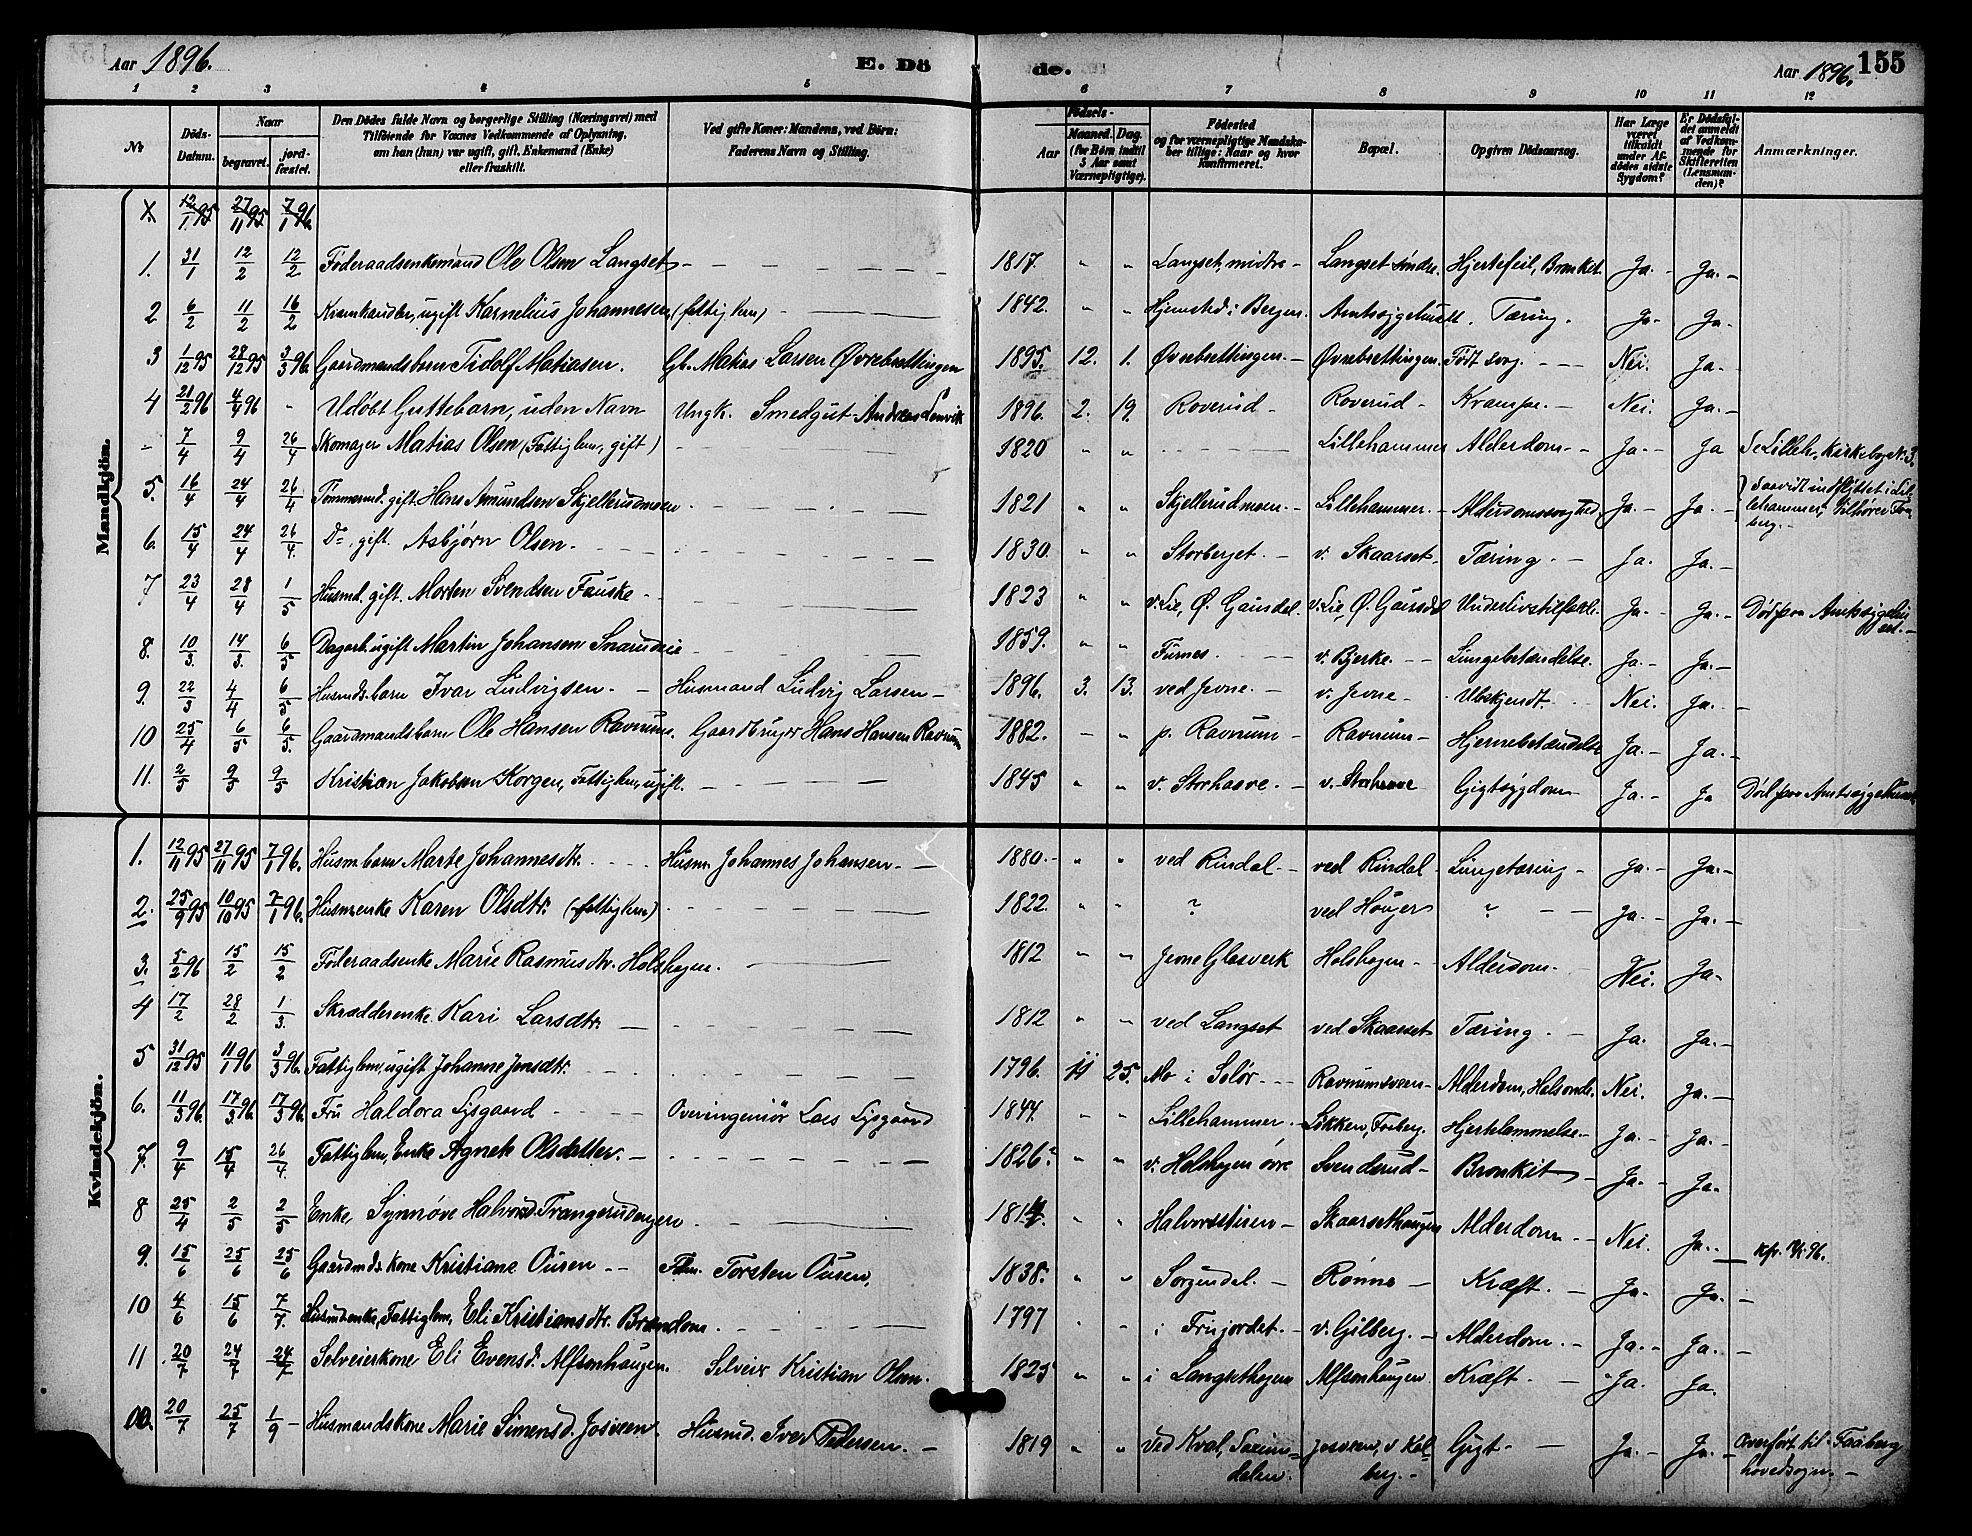 Aar 1896. E. Dö de. Aar 1896. 155
1 2 3 4 5 6 7 8 9 10 11 12
No Döds-Datum. Naar begravet. jordfæstet. Den Dödes fulde Navn og borgerlige Stilling (Næringsvei) med Tilföiende for Voxnes Vedkommende af Oplysning, om han (hun) var ugift, gift, Enkemand (Enke) eller fraskilt. Ved gifte Koner: Mandens, ved Börn: Faderens Navn og Stilling. Födsels- Aar Maaned. Dag. (for Börn indtil 5 Aar samt Værnepligtige). Födested og for værnepligtige Mandskaber tillige: Naar og hvor Konfirmeret. Bopæl. Opgiven Dödsaarsag. Har Læge været tilkaldt under Afdödes sidste Sygdom? Er Dödsfaldet anmeldt af Vedkommende for Skifteretten (Lensmanden)? Anmærkninger.
Mandkjön.
12/1 95 27/11 95 7/1 96
1. 31/1 12/2 12/2 Föderaadsenkemand Ole Olsen Langset 1817. " " Langset, midtre Langset söndre Hjertefeil, Bronkit. Ja. Ja.
2 6/2 11/2 16/2 ugift Karnelius Johannesen, (fattiglem) 1842. " " Hjemsted i Bergen. Amtssygehuset. Tæring. Ja. Ja.
3 1/12 95 28/12 95 3/3 96 Gaardmandsbarn Tidolf Matiasen. Gb. Matias Larsen Øvrebrettingen 1895. 12. 1. Øvrebrettingen. Øvrebrettingen. Födt svag. Nei. Ja.
4 21/2 96 4/4 96 - Udöbt Guttebarn, uden Navn Ungk. Smedgut Andreas Lunvik 1896. 2. 19. Roverud Roverud Krampe. Nei. Ja.
- 7/4 9/4 26/4 Skomager Matias Olsen (Fattiglem, gift) 1820 " " Lillehammer Alderdom. Ja. Ja Se Lilleh. Kirkebog No. 3.
5. 16/4 24/4 26/4 Tömmermd. gift. Hans Amundsen Skjellerudmoen 1821 " " Skjellerudmoen. Lillehammer. Ja. Ja. Saavidt indflyttet i Lillehammer, tilhörer Faaberg.
6. 15/4 24/4 26/4. Do, gift. Asbjörn Olsen. 1830. " " Storberget. v. Skaarset. Tæring. Ja. Ja.
7 23/4 28/4 1/5 Husmd. gift. Morten Svendsen Fauske 1823 " " v. Lie, Ø. Gausdal. v. Lie, Ø. Gausdal Underlivstilfælde. Ja. Ja. Död paa Amtssygehuset.
8. 10/3. 14/3. 6/5 Dagarb. ugift Martin Johansen Snarudeie 1859. " " Furnes. v. Bjerke. Lungebetændelse. Ja. Ja.
9. 22/3 4/4 6/5 Husmds. barn Ivar Ludvigsen. Husmand Ludvig Larsen 1896. 3. 13. ved Jevne. v. Jevne Ubekjendt. Nei. Ja.
10 25/4 6/5 6/5. Gaardmandsbarn Ole Hansen Ravnum. Gaardbruger Hans Hansen Ravnum 1882. - " p. Ravnum Ravnum Hjernebetændelse Ja. Ja.
11. 2/5 9/5 9/5 Kristian Jakobsen Korgen, Fattiglem, ugift. 1845 " " v. Storhaave. v. Storhaave Gigtsygdom Ja. Ja Död paa Amtssygehuset
Kvindekjön.
1. 12/11 95 27/11 95 7/1 96. Husm. barn Marte Johannesdtr. Husm. Johannes Johansen. 1880. " " ved Rindal. ved Rindal Lungetæring Ja. Ja.
2. 25/9 95 10/10 95 7/1 96. Husmenke Karen Olsdtr. (fattiglem) 1822. " " ? ved Houger ? Ja. Ja.
3. 5/2 96 15/2 15/2 Föderaadsenke Marie Rasmusdtr. Holshagen. 1812 " " Jevne Glasverk Holshagen Alderdom. Nei. Ja.
4 17/2 28/2 1/3. Skrædderenke. Kari Larsdtr. 1812 " " ved Langset ved Skaarset Tæring. Ja. Ja.
5 31/12 95 11/1 96 3/3 96. Fattiglem, ugift Johanne Jensdtr. 1796. 11 25. Mo i Solör. Ravnumsveen Alderdom, Halsonde. Nei. Ja.
6. 11/3 96. 17/3 96 17/3 96. Fru Haldora Lysgaard Overingeniör Lars Lysgaard 1844. " " Lillehammer. Lökken, Faaberg. Hjertelammelse. Ja. Ja.
7. 9/4 15/4 26/4. Fattiglem, Enke Agnete Olsdatter. 1826? " " v. Holshagen övre Svenderud Bronkit Ja. Ja.
8 25/4 2/5 2/5 Enke Synnöve Halvorsd. Trangerudengen 1814. " " Halvorsstuen Skaarsethaugen Alderdom. Nei. Ja. kfr.
9. 15/6 25/6 25/6 Gaardmds. kone Kristiane Ousen Torsten Ousen, 1838. " " Sorgendal. Rönne Kræft. Ja. Ja.
10 4/6 15/6 7/7. Husmdsenke, Fattiglem, Eli Kristiansdtr. 1797 " " i Frujordet. v. Gilberg. Alderdom. Ja. Ja.
11 20/7 24/7 24/7 Selveierkone Eli Evensd. Alfsonhaugen. Selveier Kristian Olsen. 1825 " " i Langsethagen Alfsonhaugen. Kræft. Ja. Ja.
20/7 25/7 1/9 Husmandskone Marie Simensd. Josveen Husmd. Iver Pedersen. 1819 " " ved Kval, Saxumdalen. Josveen, v Kolberg. Gigt. Ja. Ja. Overfört til Faaberg hovedsogn.